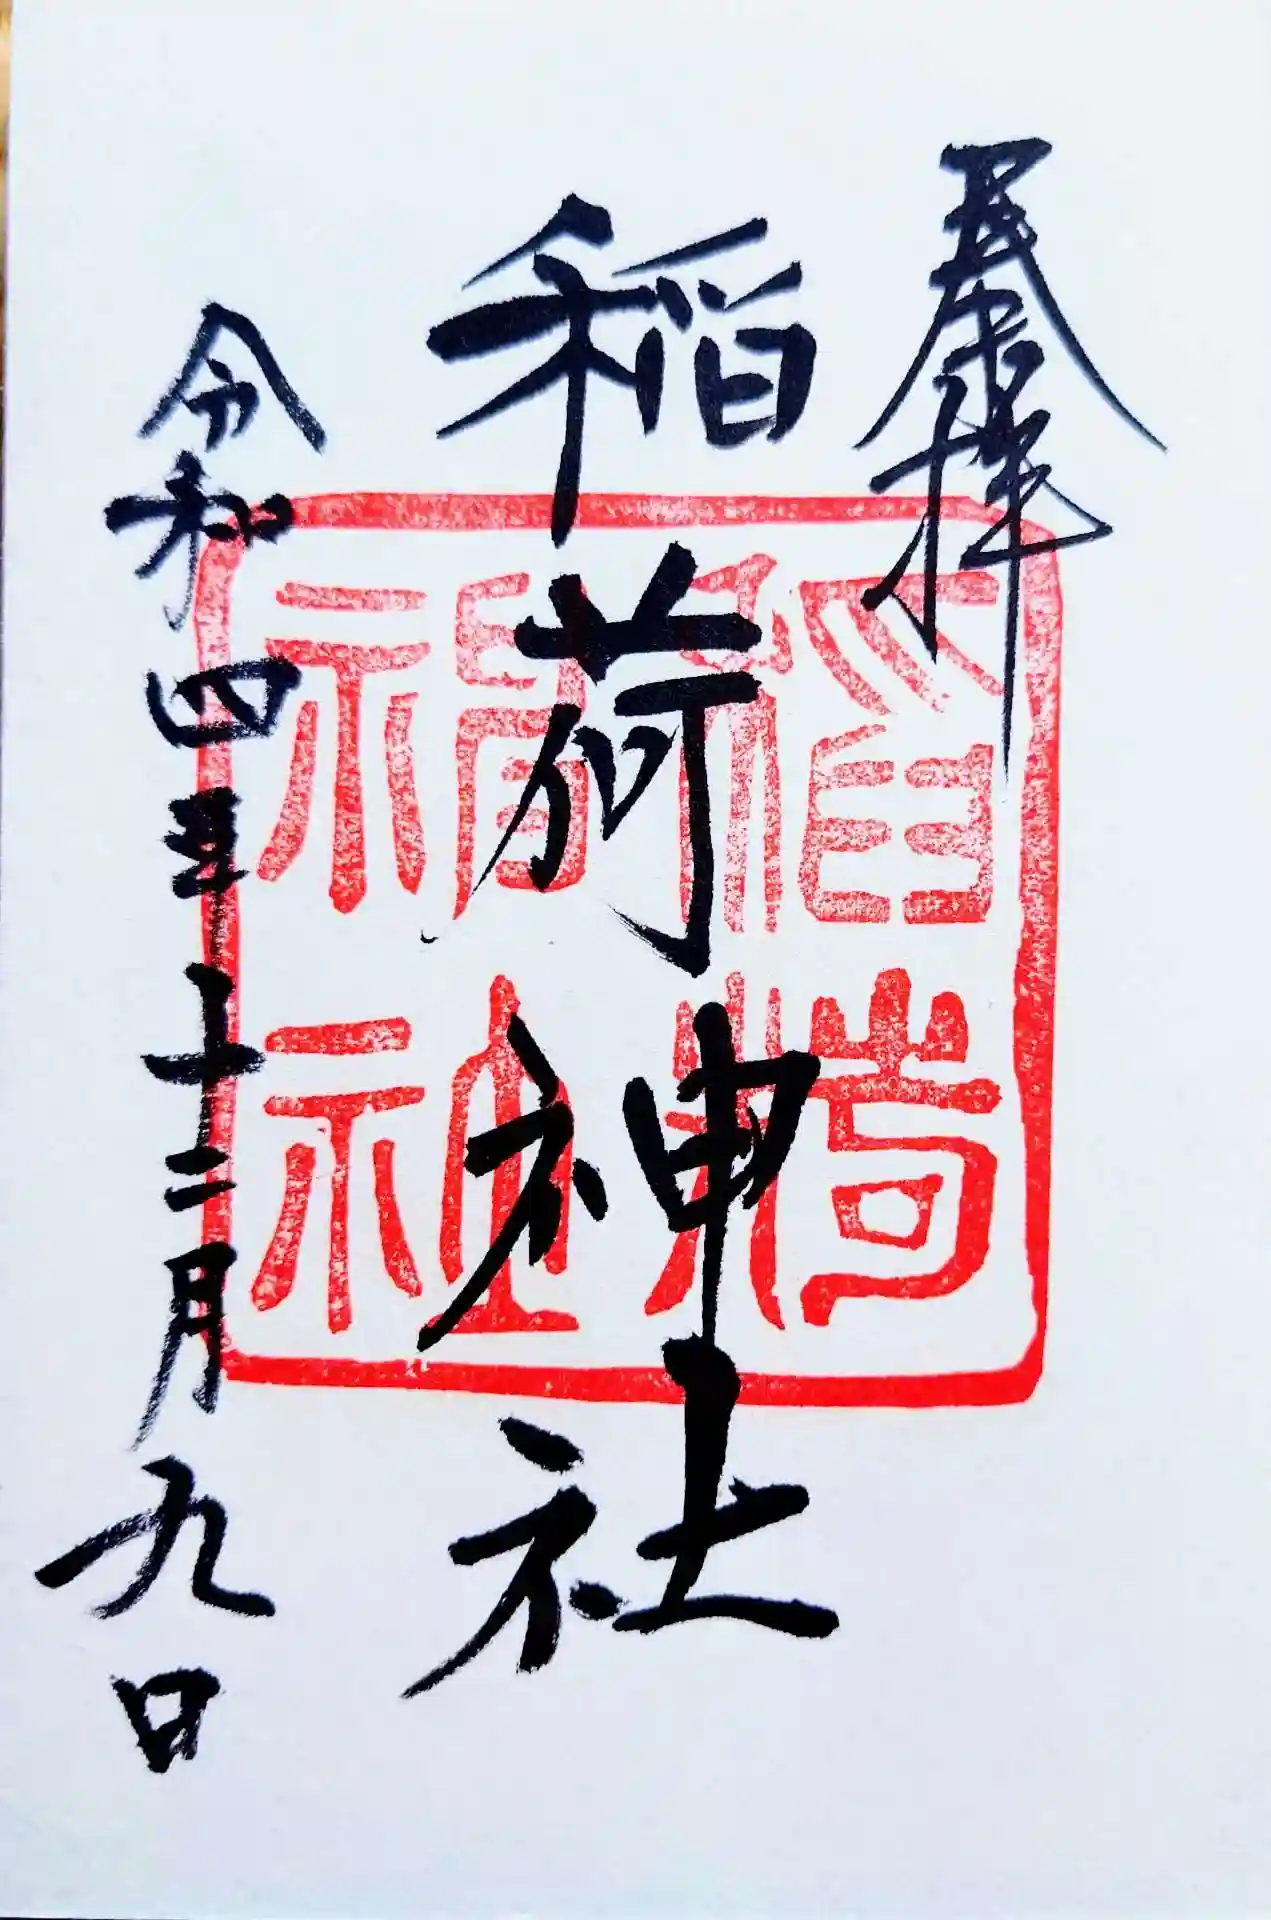 奉拝
稲荷神社
令和四年十二月九日
稲荷
神社